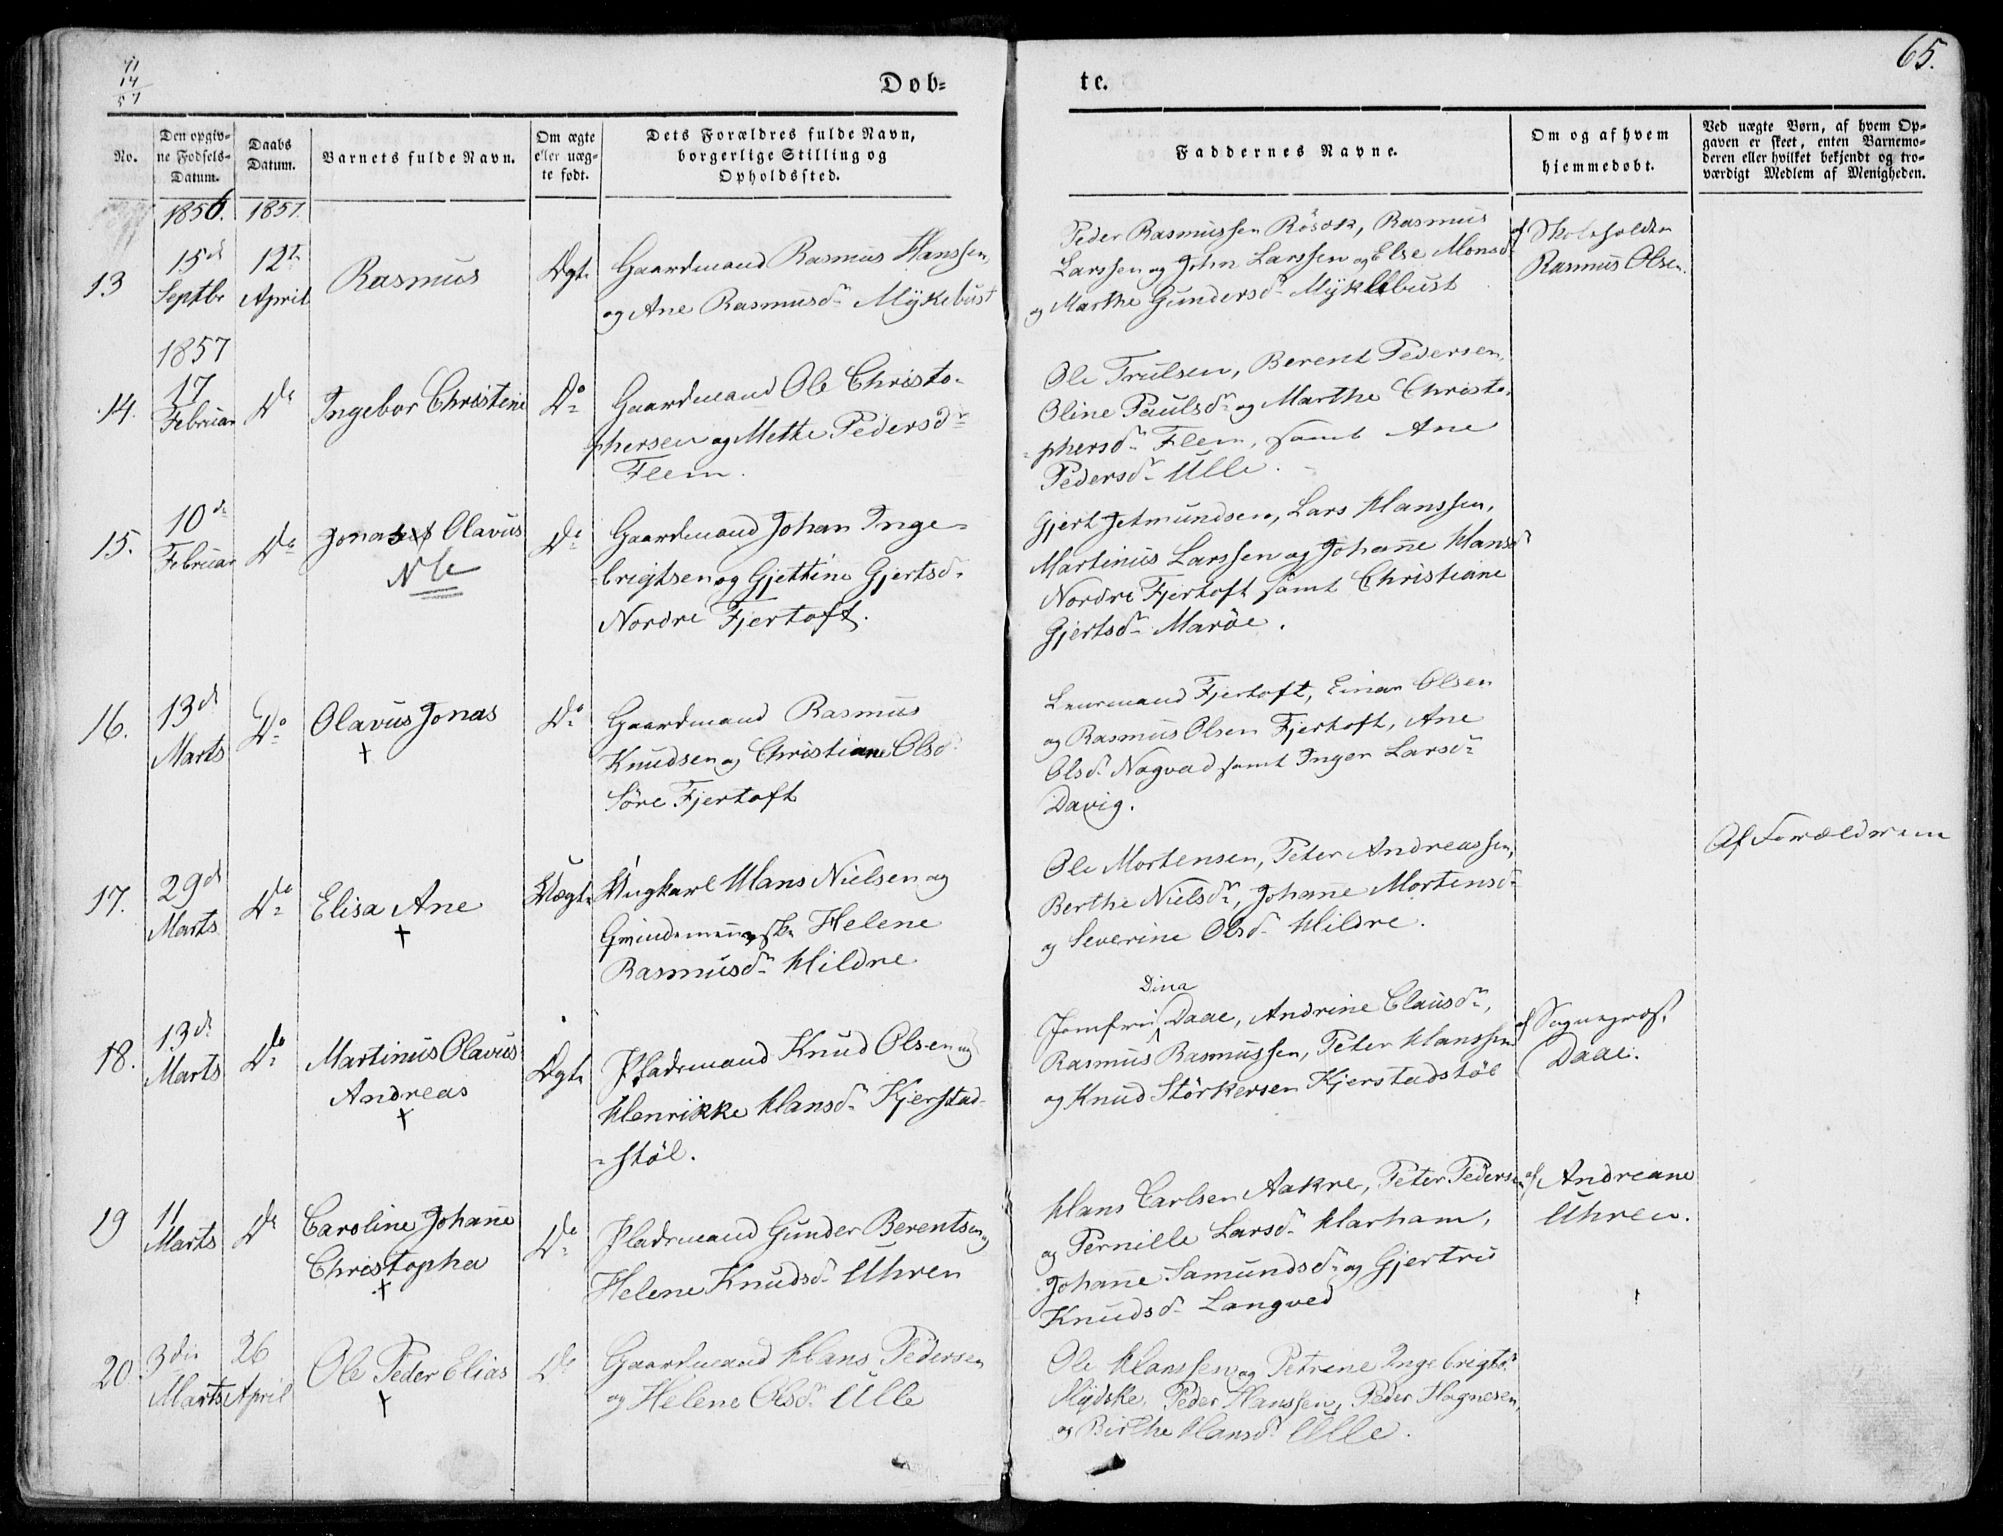 65.
11
14
57
Dob=
te.
No.
Den opgiv-
ne Fodsels-
Datum.
Daabs
Datum.
Barnets fulde Navn.
Om ægte
eller uæg-
te født.
Dets Forældres fulde Navn,
borgerlige Stilling og
Opholdssted.
Faddernes Navne.
Om og af hvem
hjemmedøbt.
Ved uægte Børn, af hvem Op-
gaven er skeet, enten Barnemo-
deren eller hvilket bekjendt og tro-
værdigt Medlem af Menigheden.
1856. 1857.
13
15de
Septbr
12te
April
Rasmus
Ægte
Gaardmand Rasmus Hanssen
og Ane Rasmusdr Mÿkebust
Peder Rasmussen Rösok, Rasmus
Larssen og John Larssen og Else Monsdr
og Marthe Gundersdr Mÿklebust
af Skoleholder
Rasmus Olsen.
1857
14.
17
Februar
Do
Ingebor Christine
Do
Gaardmand Ole Christo-
phersen og Mette Pedersdr
Flem.
Ole Trulsen, Berent Pedersen,
Oline Paulsdr og Marthe Christo-
phersdr Flem, samt Ane
Pedersdr Ulle.
15.
10de
Februar
Do
Jonas Olavus
NB
Do
Gaardmand Johan Inge-
brigtsen og Gjettine Gjertsd.
Nordre Fjertoft.
Gjert Jetmundsen, Lars Hanssen,
Martinus Larssen og Johanne Hansdr
Nordre Fjertoft samt Christiane
Gjertsdr Maröe.
16.
13de
Marts
Do
Olavus Jonas
+
Do
Gaardmand Rasmus
Knudsen og Christiane Olsdr
Söre Fjertoft
Leurmand Fjertoft, Einar Olsen
og Rasmus Olsen Fjertoft, Ane
Olsdr Nogvad samt Inger Larsdr
Davig.
17.
29de
Marts
Do
Elisa Ane
+
Uægte
Ungkarl Hans Nielsen og
Qvindemenneske Helene
Rasmusdr Hildre
Ole Mortensen, Peter Andreassen,
Berthe Nielsdr, Johanne Mortensdr
og Severine Olsdr Hildre.
Af Forældrene
18.
13de
Marts
Do
Martinus Olavus
Andreas
+
Ægte
Pladsmand Knud Olsen og
Henrikke Hansdr Kjerstad-
-støl.
Dina
Jomfru Daae, Andrine Clausdr,
Rasmus Rasmussen, Peter Hanssen
og Knud Störkersen Kjerstadstøl
af Sognepræst
Daae.
19
11
Marts
Do
Caroline Johanne
Christopha
+
Do
Pladsmand Gunder Berentsen og
Helene Knudsdr Uhren
Hans Carlsen Aakre, Peter Pedersen
og Pernille Larsdr Harham,
Johanne Samundsdr og Gjertru
Knudsdr Langved
af Andreane
Uhren.
20
3die
Marts
26
April
Ole Peder Elias
+
Do
Gaardmand Hans Pedersen
og Helene Olsdr Ulle
Ole Hanssen og Petrene Ingebrigtsdr
Slÿdske, Peder Hanssen, Peder Hagnesen,
og Birthe Hansdr Ulle.